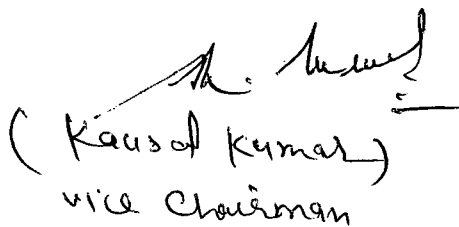 (Kausal Kumar)
vice Chairman